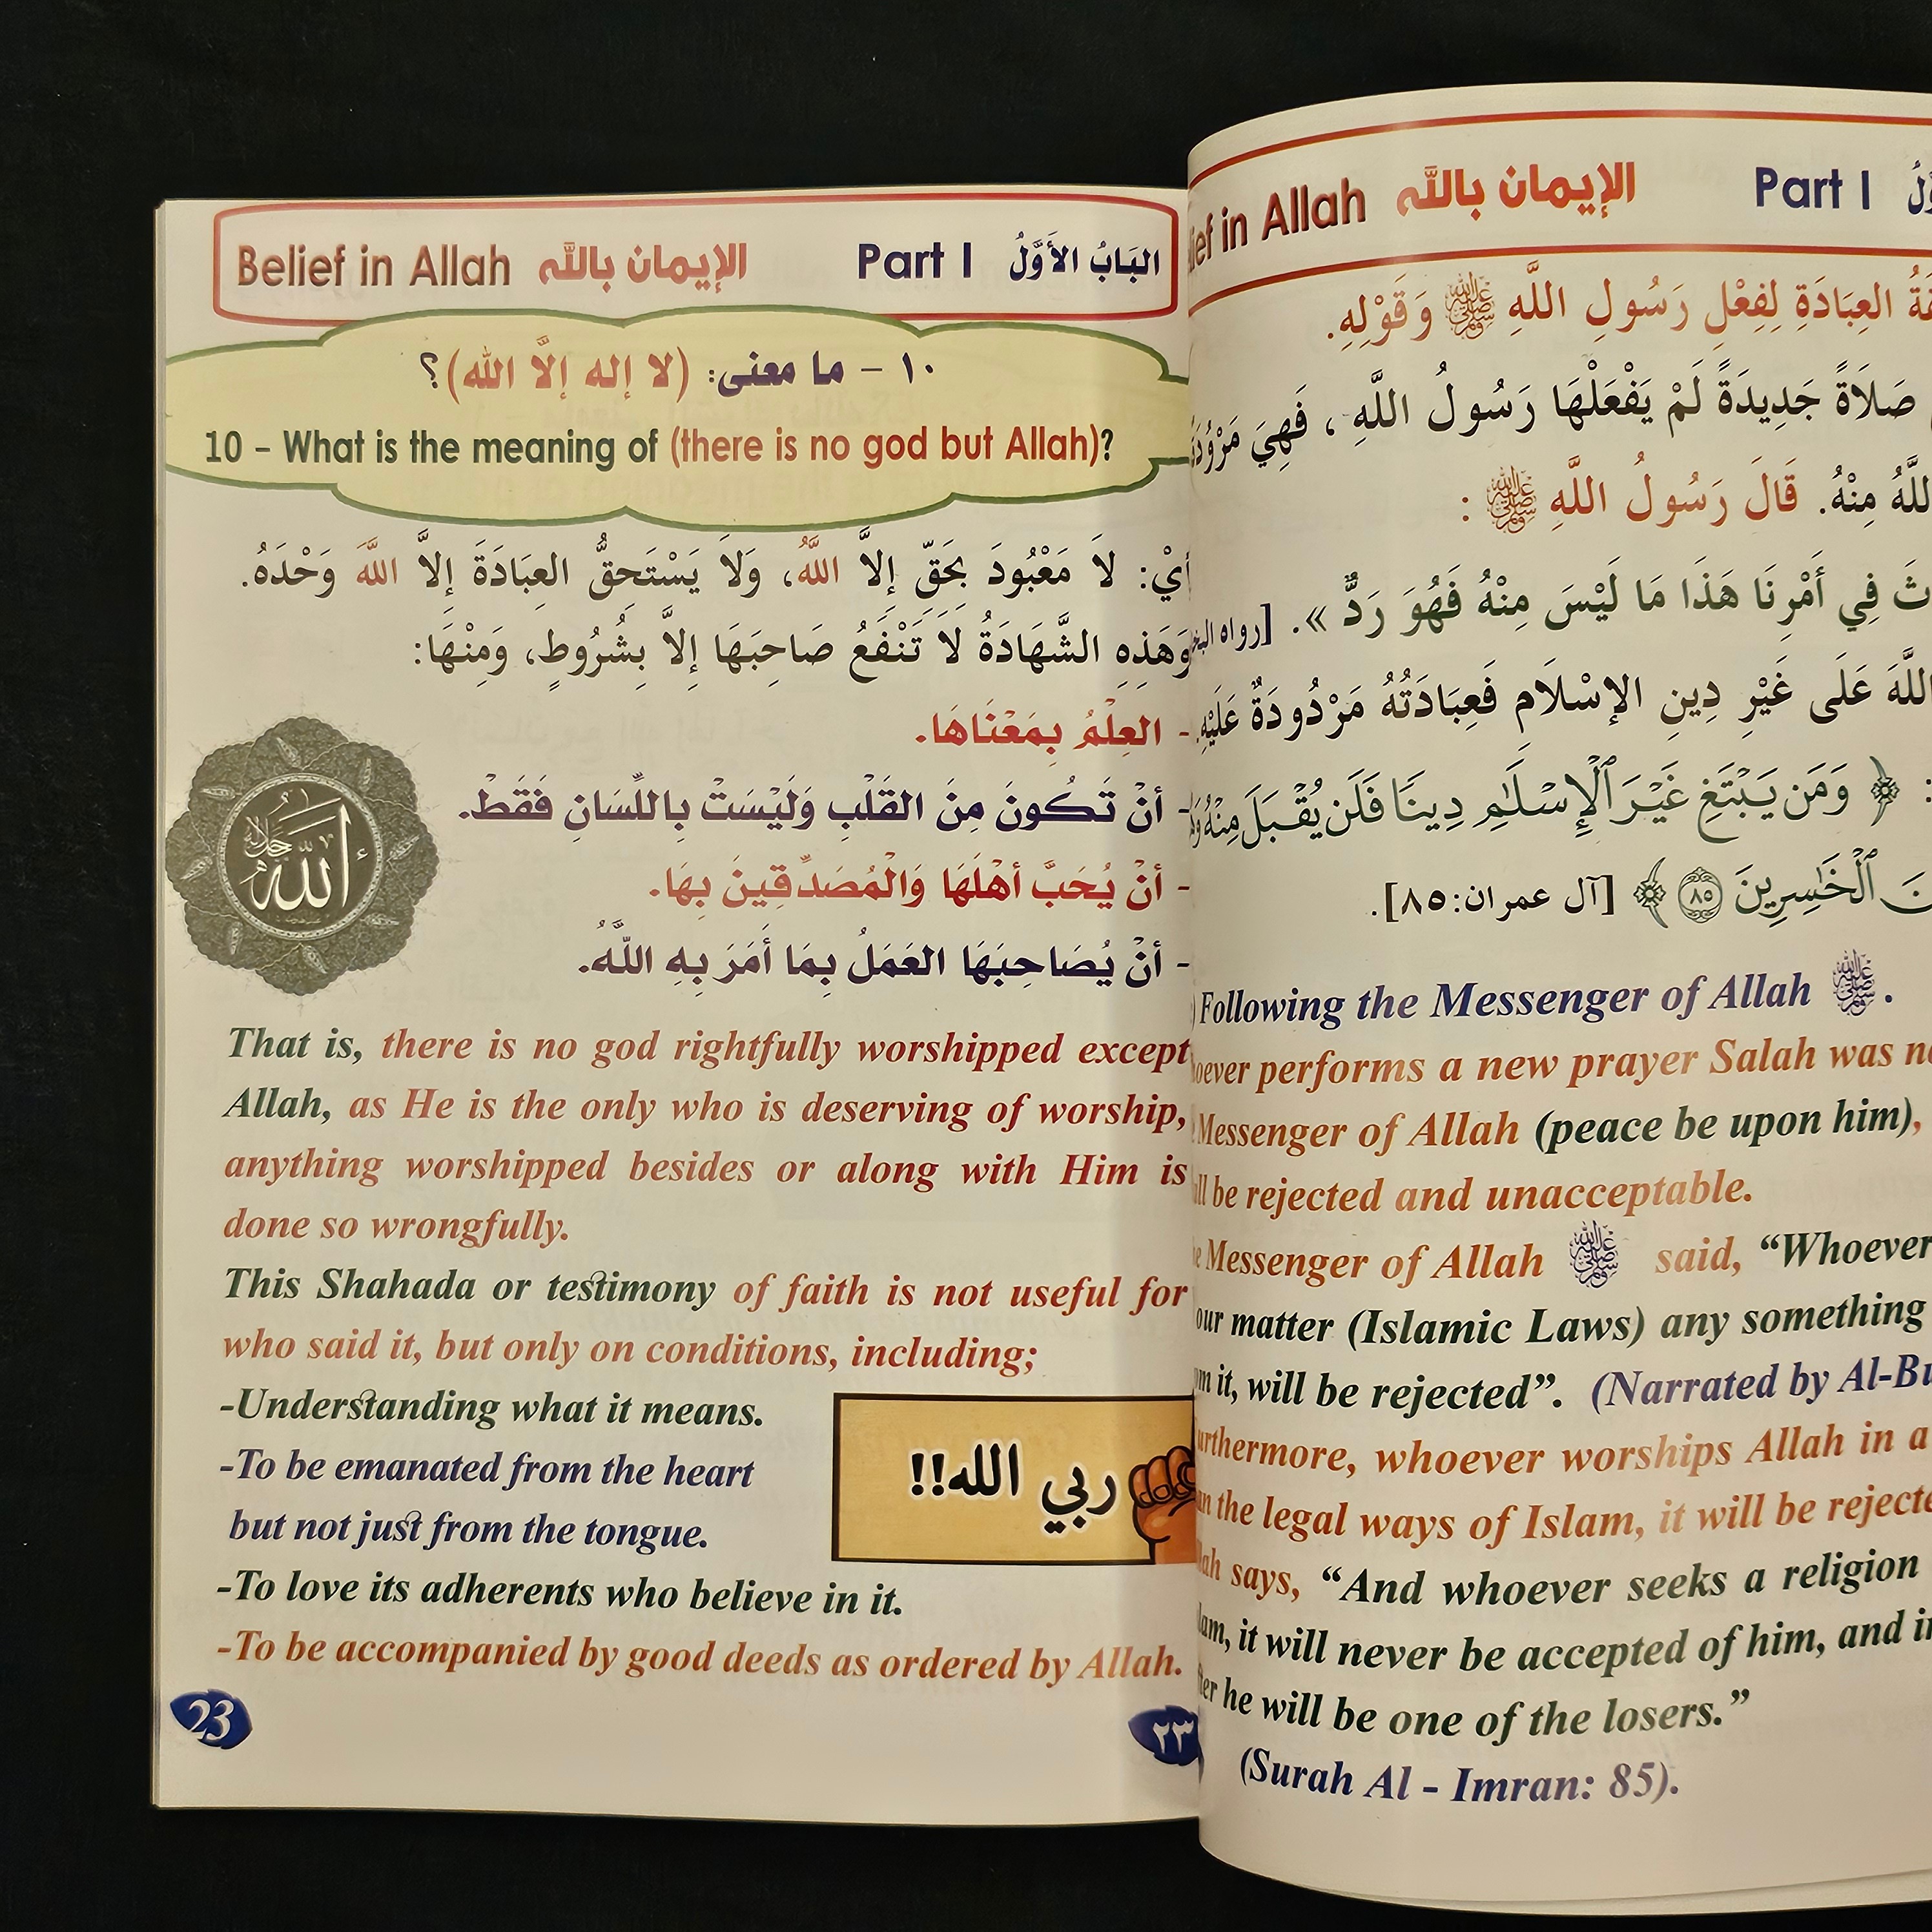 Belief in Allah الإيمان بالله Part I البَابُ الأَوَّلُ
١٠ – ما معنى: (لا إله إلَّا الله)؟
10 – What is the meaning of (there is no god but Allah)?
أيْ: لاَ مَعْبُودَ بَحَقّ إلاَّ اللَّهُ، وَلاَ يَسْتَحِقُّ العِبَادَةَ إلاَّ اللَّهَ وَحْدَهُ.
وَهَذِهِ الشَّهَادَةُ لاَ تَنْفَعُ صَاحِبَهَا إلاَّ بِشُرُوطٍ، وَمِنْهَا:
- العِلْمُ بِمَعْنَاهَا.
- أنْ تَكُونَ مِنَ القَلْبِ وَلَيْسَتْ بِاللِّسَانِ فَقَطْ.
- أنْ يُحَبَّ أهْلَهَا وَالْمُصَدِّقِينَ بِهَا.
- أنْ يُصَاحِبَهَا العَمَلُ بِمَا أَمَرَ بِهِ اللَّهُ.
الله جل جلاله
That is, there is no god rightfully worshipped except
Allah, as He is the only who is deserving of worship,
anything worshipped besides or along with Him is
done so wrongfully.
This Shahada or testimony of faith is not useful for
who said it, but only on conditions, including;
-Understanding what it means.
-To be emanated from the heart
but not just from the tongue.
-To love its adherents who believe in it.
-To be accompanied by good deeds as ordered by Allah.
ربي الله!!
23
٢٣
in Allah الإيمان بالله Part I
العِبَادَةِ لِفِعْلِ رَسُولِ اللَّهِ ﷺ وَقَوْلِهِ.
صَلاَةً جَدِيدَةً لَمْ يَفْعَلْهَا رَسُولُ اللَّهِ، فَهِيَ
مِنْهُ. قَالَ رَسُولُ اللَّهِ ﷺ :
فِي أَمْرِنَا هَذَا مَا لَيْسَ مِنْهُ فَهُوَ رَدٌّ ». [رواه
اللَّهَ عَلَى غَيْرِ دِينِ الإسْلاَم فَعِبَادَتُهُ مَرْدُودَةٌ عَلَيْهِ.
: ﴿ وَمَن يَبْتَغِ غَيْرَ ٱلْإِسْلَٰمِ دِينًا فَلَن يُقْبَلَ مِنْهُ
ٱلْخَٰسِرِينَ ٨٥ ﴾ [آل عمران:٨٥].
Following the Messenger of Allah ﷺ.
performs a new prayer Salah was
Messenger of Allah (peace be upon him),
be rejected and unacceptable.
Messenger of Allah ﷺ said, “Whoever
our matter (Islamic Laws) any something
it, will be rejected”. (Narrated by
whoever worships Allah in a
the legal ways of Islam, it will be
says, “And whoever seeks a religion
it will never be accepted of him, and
he will be one of the losers.”
(Surah Al - Imran: 85).